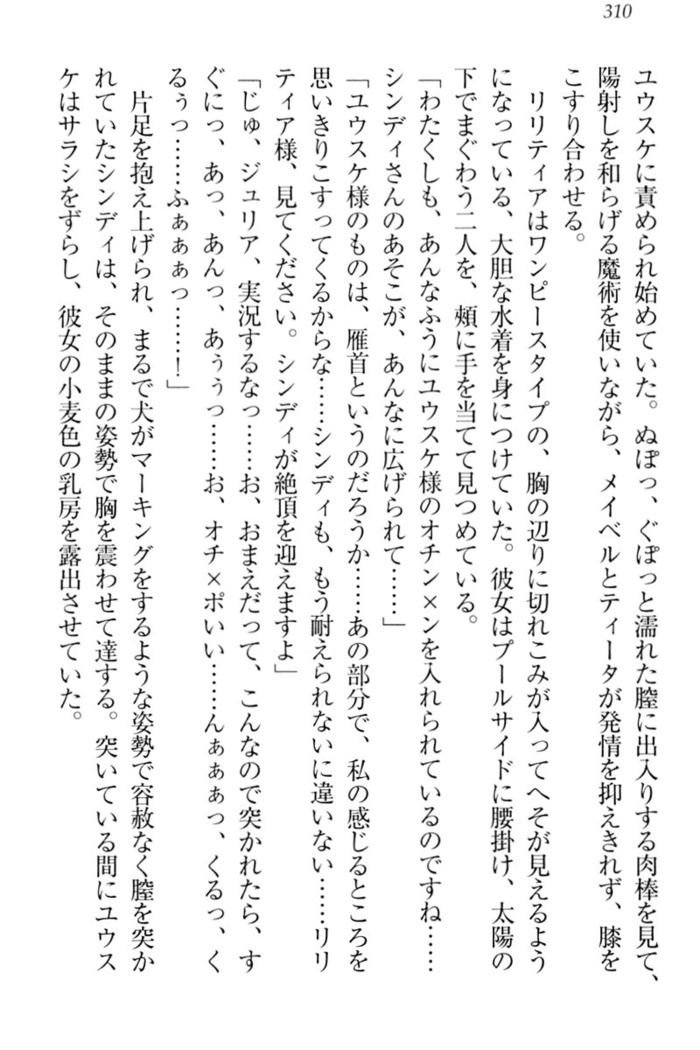 310
ユウスケに責められ始めていた。ぬぽっ、ぐぽっと濡れた膣に出入りする肉棒を見て、
陽射しを和らげる魔術を使いながら、メイベルとティータが発情を抑えきれず、膝を
こすり合わせる。
　リリティアはワンピースタイプの、胸の辺りに切れこみが入ってへそが見えるよう
になっている、大胆な水着を身につけていた。彼女はプールサイドに腰掛け、太陽の
下でまぐわう二人を、頬に手を当てて見つめている。
「わたくしも、あんなふうにユウスケ様のオチン×ンを入れられているのですね……
シンディさんのあそこが、あんなに広げられて……」
「ユウスケ様のものは、雁首というのだろうか……あの部分で、私の感じるところを
思いきりこすってくるからな……シンディも、もう耐えられないに違いない……リリ
ティア様、見てください。シンディが絶頂を迎えますよ」
「じゅ、ジュリア、実況するなっ……お、おまえだって、こんなので突かれたら、す
ぐにっ、あっ、あんっ、あぅぅっ……お、オチ×ポいい……んぁぁぁっ、くるっ、く
るぅっ……ふぁぁぁっ……！」
　片足を抱え上げられ、まるで犬がマーキングをするような姿勢で容赦なく膣を突か
れていたシンディは、そのままの姿勢で胸を震わせて達する。突いている間にユウス
ケはサラシをずらし、彼女の小麦色の乳房を露出させていた。